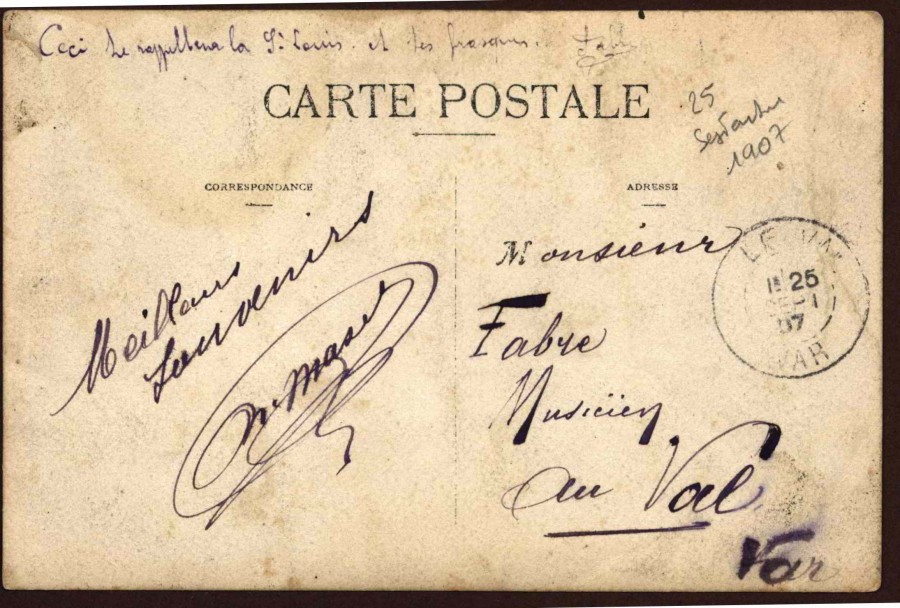 Ceci te rappellera la St Louis. et tes frasques. Fabre
CARTE POSTALE
25
Septembre
1907
CORRESPONDANCE
ADRESSE
Meilleurs
Souvenirs
Monsieur
Fabre
Musicien
au Val
Var
LE VAL
25
07
VAR